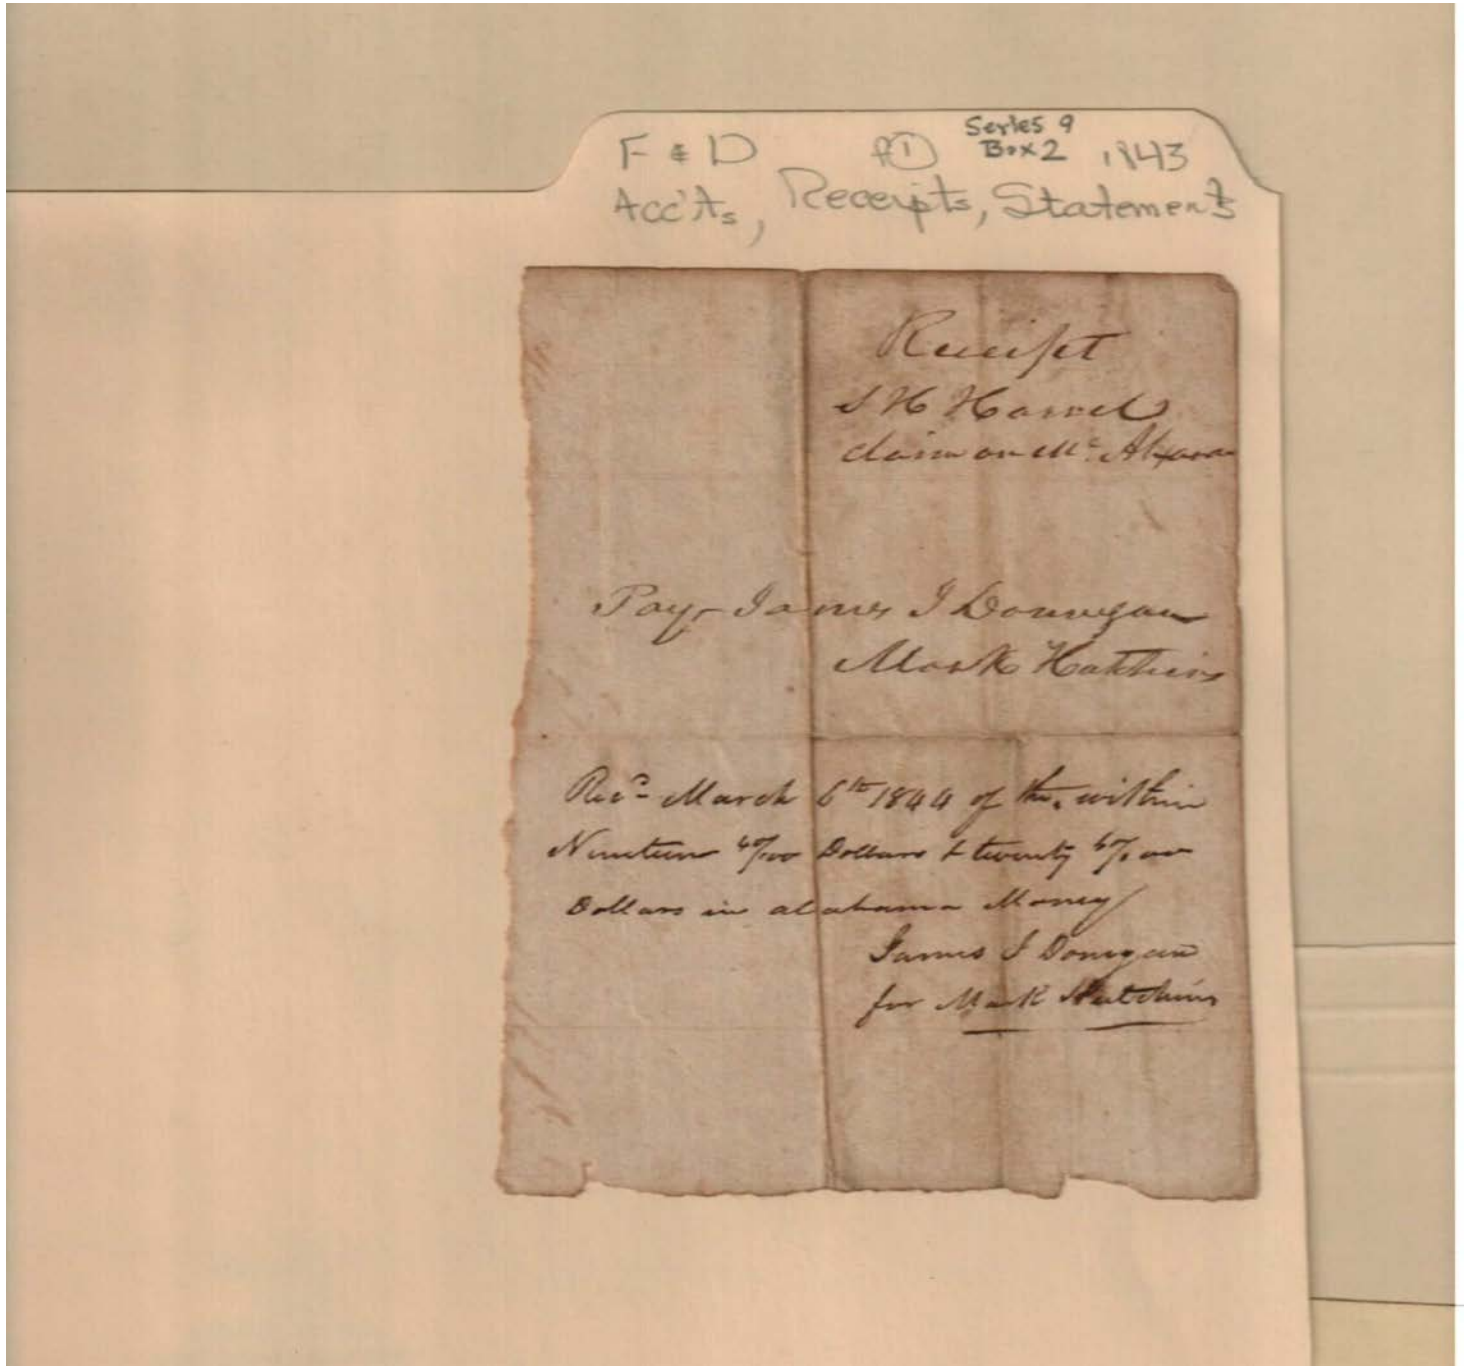 F & D ① Series 9
Box 2 1843
Acc'ts, Receipts, Statements
Receipt
S H Harrel
claim on Mc
Pay James J Donnegan
Mark Hutchins
Recd March 6th 1844 of the within
Nineteen 40/100 Dollars & twenty 60/100
Dollars in alabama Money
James J Donegan
for Mark Hutchins